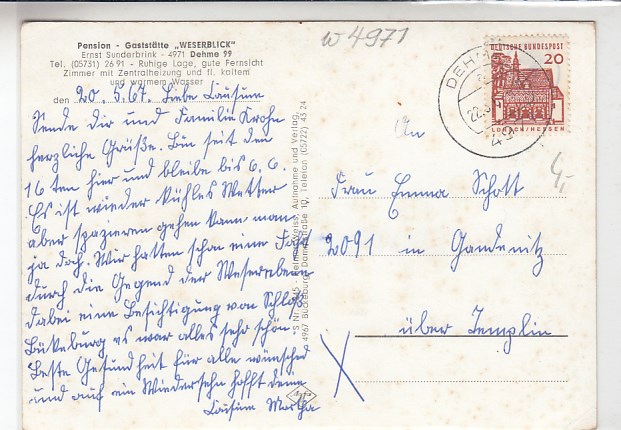 Pension - Gaststätte „WESERBLICK"
Ernst Sunderbrink - 4971 Dehme 99
Tel. (05731) 26 91 - Ruhige Lage, gute Fernsicht
Zimmer mit Zentralheizung und fl. kaltem
und warmem Wasser
den 20. 5. 67. Liebe Cousine
Sende dir und Familie Krohn
herzliche Grüße. Bin seit den
16ten hier und bleibe bis 6.6.
Es ist wieder kühles Wetter
aber spazieren gehen kann man
ja doch. Wir hatten schon eine Fahrt
durch die Gegend der Weserebene
dabei eine Besichtigung von Schloß
Bückeburg es war alles sehr schön
Beste Gesundheit für alle wünscht
und auf ein Wiedersehn hofft deine
Cousine Martha
Aufnahme und Verlag,
4967 Bückeburg, Telefon (05722) 45 24
W 4971
DEUTSCHE BUNDESPOST
20
LORSCH/HESSEN
DEHME
22.5
An
Frau Emma Schott
2091 in Gandenitz
über Templin
4,-